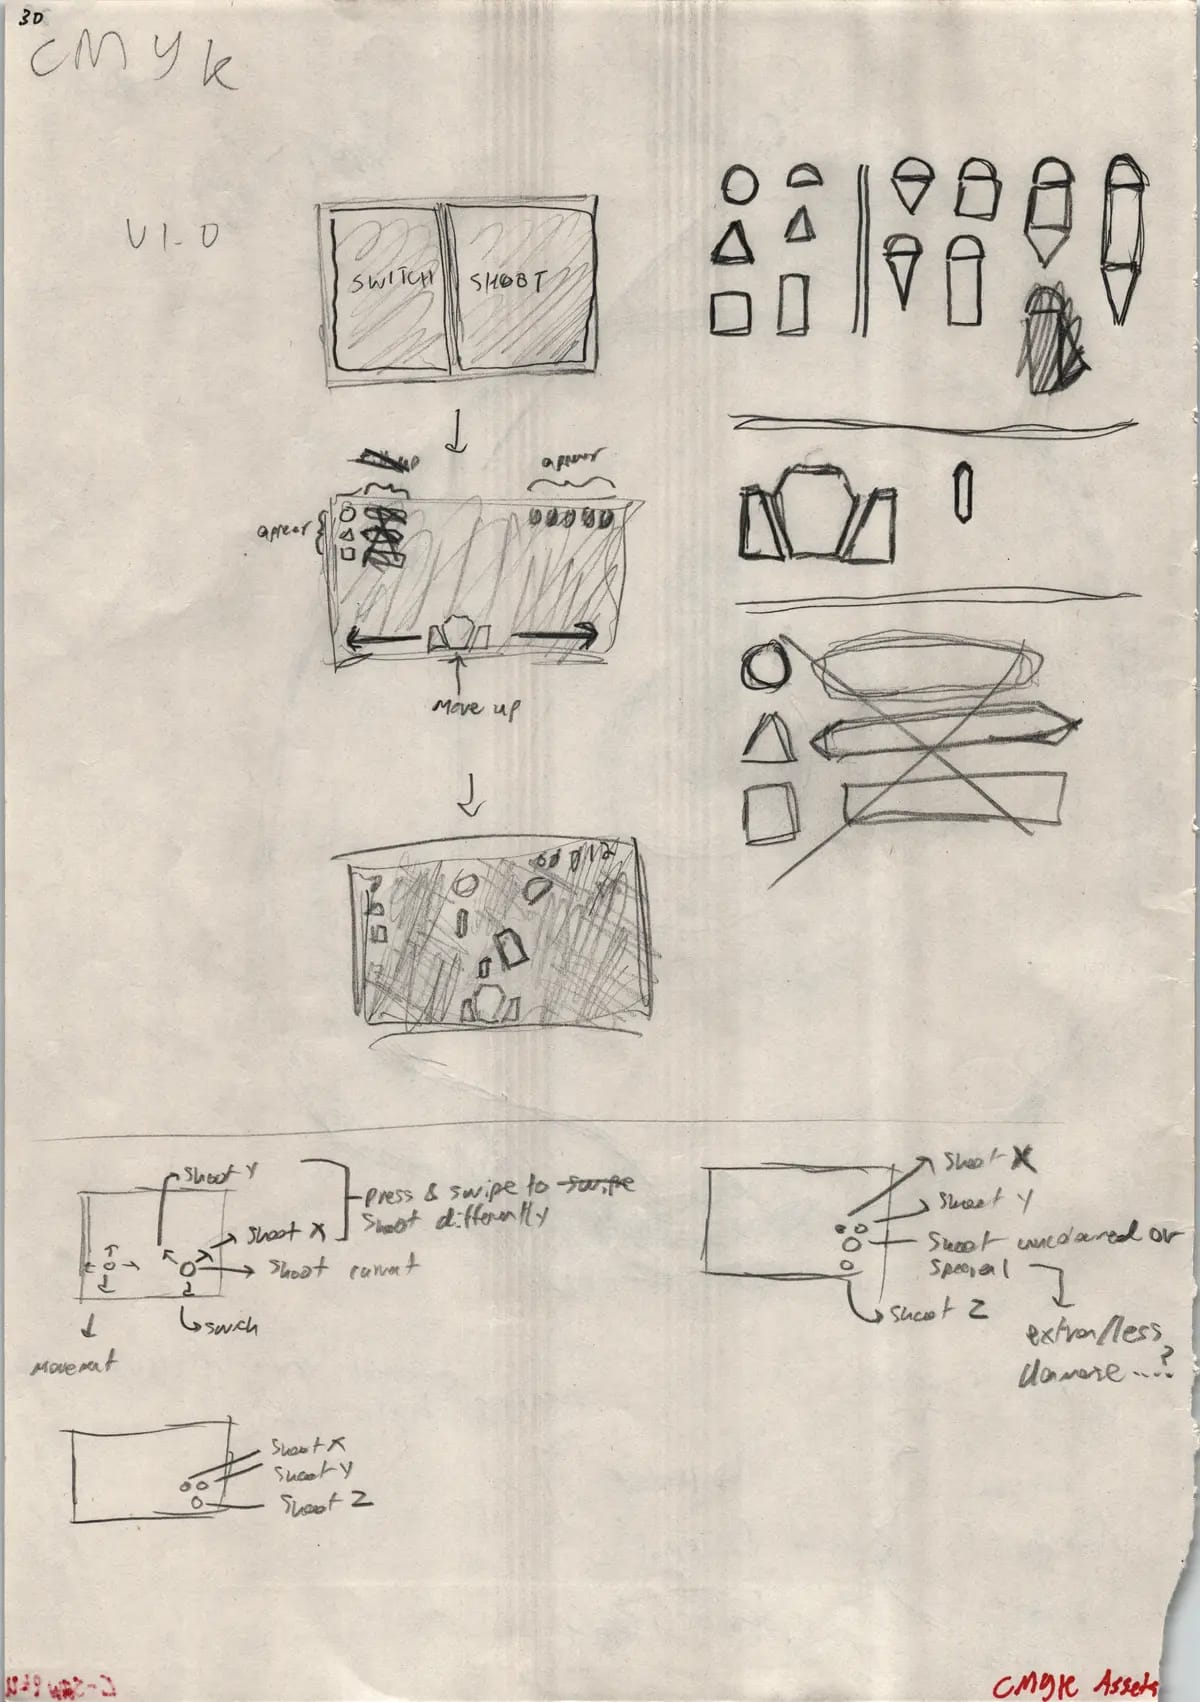 30
CMYK
V1.0
SWITCH
SHOOT
apear
apear
Move up
012
Shoot Y
press & swipe to swipe
Shoot differently
Shoot X
Shoot current
switch
movement
Shoot X
Shoot Y
Shoot uncoloured or
special
Shoot Z
extra/less
damage....?
Shoot X
Shoot Y
Shoot Z
CMYK Assets